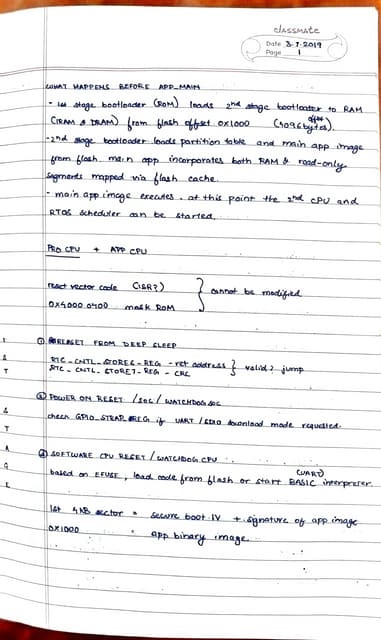 classmate
Date 3.7.2019
Page 1
WHAT HAPPENS BEFORE APP_MAIN
- 1st stage bootloader (ROM) loads 2nd stage bootloader to RAM
(IRAM & DRAM) from flash offset 0x1000 (4096 bytes).
- 2nd stage bootloader loads partition table and main app image
from flash. main app incorporates both RAM & read-only
segments mapped via flash cache.
- main app image executes. at this point the 2nd CPU and
RTOS scheduler can be started.
PRO CPU + APP CPU
reset vector code (ISR?) } cannot be modified
0x4000 0400 mask ROM
① RESET FROM DEEP SLEEP
RTC_CNTL_STORE6_REG - ret address } valid? jump
RTC_CNTL_STORE7_REG - CRC
② POWER ON RESET / SOC / WATCHDOG SOC
check GPIO_STRAP_REG if UART / SDIO download mode requested.
③ SOFTWARE CPU RESET / WATCHDOG CPU
(UART)
based on EFUSE, load code from flash or start BASIC interpreter.
1st 4KB sector = secure boot IV + signature of app image
0x1000 = app binary image.